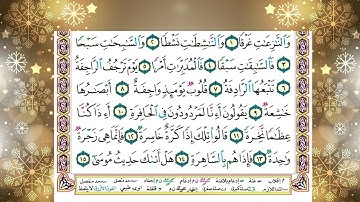 وَٱلنَّـٰزِعَـٰتِ غَرْقًا ١ وَٱلنَّـٰشِطَـٰتِ نَشْطًا ٢ وَٱلسَّـٰبِحَـٰتِ سَبْحًا
٣ فَٱلسَّـٰبِقَـٰتِ سَبْقًا ٤ فَٱلْمُدَبِّرَٰتِ أَمْرًا ٥ يَوْمَ تَرْجُفُ ٱلرَّاجِفَةُ
٦ تَتْبَعُهَا ٱلرَّادِفَةُ ٧ قُلُوبٌ يَوْمَئِذٍ وَاجِفَةٌ ٨ أَبْصَـٰرُهَا
خَـٰشِعَةٌ ٩ يَقُولُونَ أَءِنَّا لَمَرْدُودُونَ فِى ٱلْحَافِرَةِ ١٠ أَءِذَا كُنَّا
عِظَـٰمًا نَّخِرَةً ١١ قَالُوا۟ تِلْكَ إِذًا كَرَّةٌ خَاسِرَةٌ ١٢ فَإِنَّمَا هِىَ زَجْرَةٌ
وَٰحِدَةٌ ١٣ فَإِذَا هُم بِٱلسَّاهِرَةِ ١٤ هَلْ أَتَىٰكَ حَدِيثُ مُوسَىٰٓ ١٥